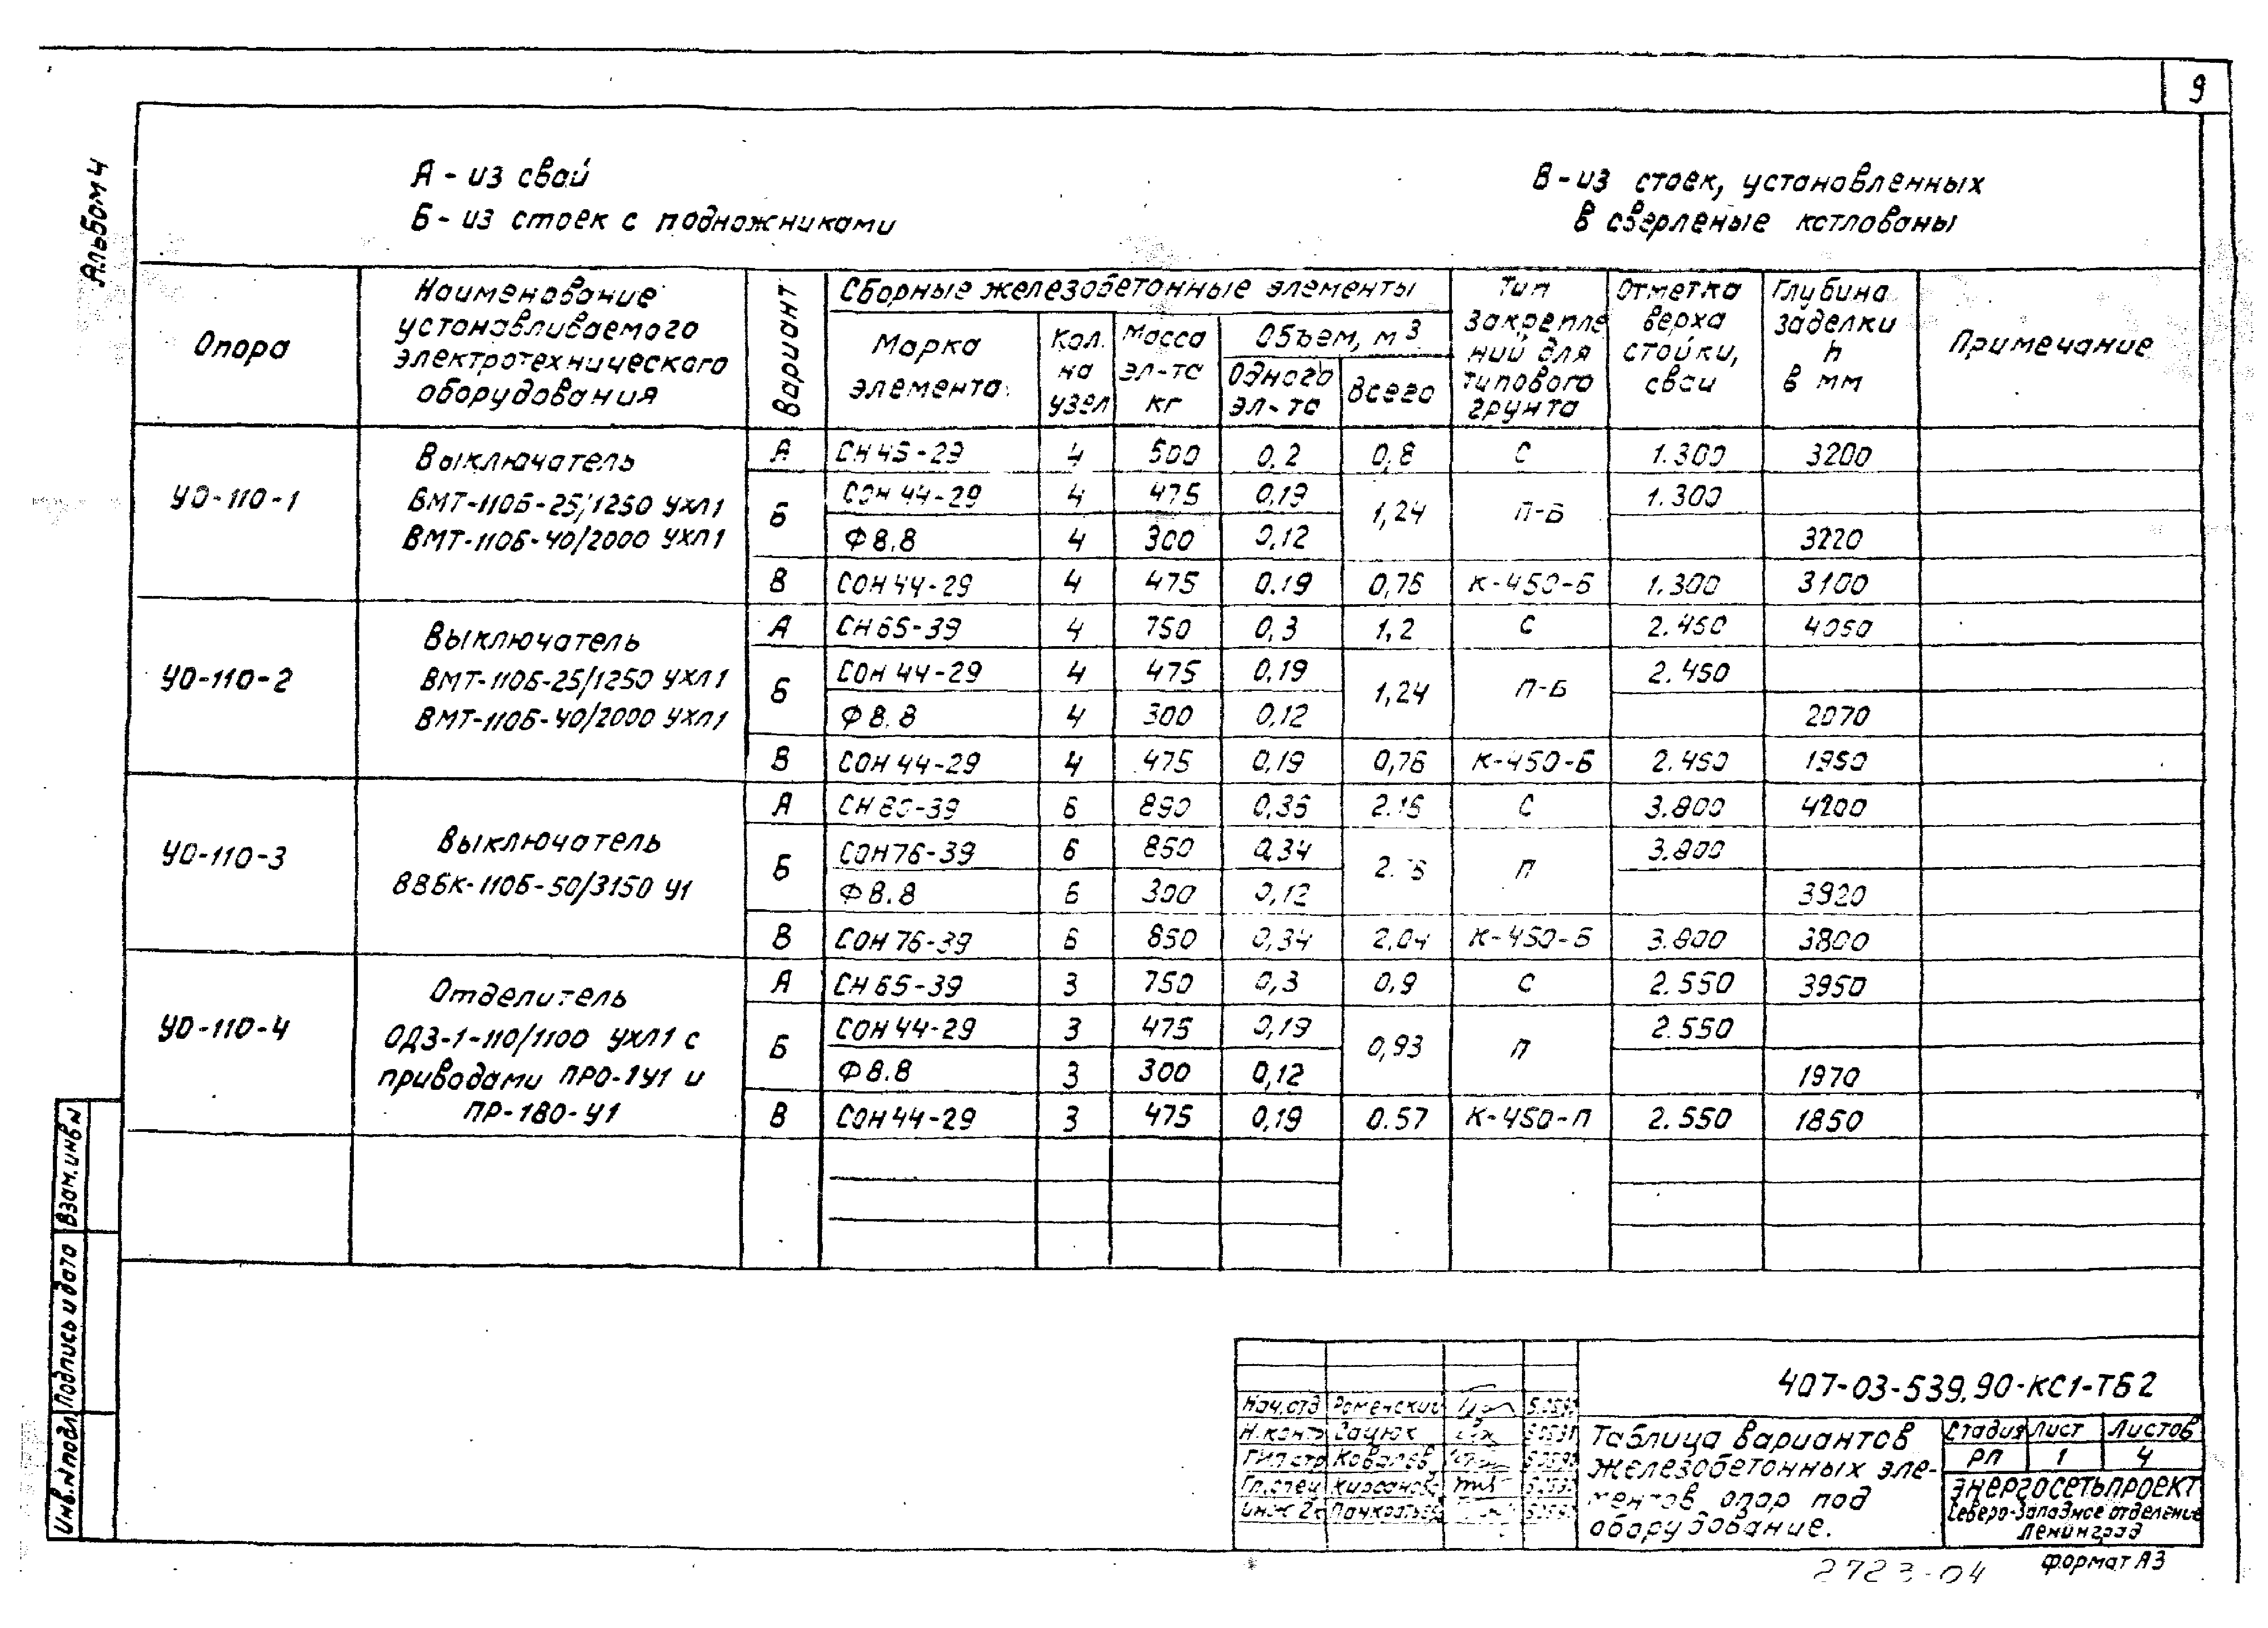 9
Альбом 4
А - из свай
Б - из стоек с подножниками
В - из стоек, установленных
в сверленые котлованы
Опора
Наименование
устанавливаемого
электротехнического
оборудования
Вариант
Сборные железобетонные элементы
Марка
элемента
Кол.
на
узел
Масса
эл-та
кг
Объем, м3
Одного
эл-та
Всего
Тип
закрепле
ний для
типового
грунта
Отметка
верха
стойки,
сваи
Глубина
заделки
h
в мм
Примечание
УО-110-1
Выключатель
ВМТ-110Б-25/1250 УХЛ1
ВМТ-110Б-40/2000 УХЛ1
А СН 45-29 4 500 0,2 0,8 С 1.300 3200
Б СОН 44-29 4 475 0,19 1,24 П-Б 1.300
Ф 8.8 4 300 0,12 3220
В СОН 44-29 4 475 0.19 0,76 К-450-Б 1.300 3100
УО-110-2
Выключатель
ВМТ-110Б-25/1250 УХЛ1
ВМТ-110Б-40/2000 УХЛ1
А СН 65-39 4 750 0,3 1,2 С 2.450 4050
Б СОН 44-29 4 475 0,19 1,24 П-Б 2.450
Ф 8.8 4 300 0,12 2070
В СОН 44-29 4 475 0,19 0,76 К-450-Б 2.450 1950
УО-110-3
Выключатель
ВВБК-110Б-50/3150 У1
А СН 80-39 6 890 0,36 2.16 С 3.800 4200
Б СОН 76-39 6 850 0,34 П 3.800
Ф 8.8 6 300 0,12 3920
В СОН 76-39 6 850 0,34 2,04 К-450-Б 3.800 3800
УО-110-4
Отделитель
ОДЗ-1-110/1100 УХЛ1 с
приводами ПРО-1У1 и
ПР-180-У1
А СН 65-39 3 750 0,3 0,9 С 2.550 3950
Б СОН 44-29 3 475 0,19 0,93 П 2.550
Ф 8.8 3 300 0,12 1970
В СОН 44-29 3 475 0,19 0.57 К-450-П 2.550 1850
Взам.инв N
Подпись и дата
Инв.N подл
407-03-539.90-КС1-ТБ2
Нач.отд Роменский
Н.контр Зацюк
ГИП стр Ковалев
Гл.спец Кирсанова
Инж 2к
Таблица вариантов
железобетонных эле-
ментов опор под
оборудование.
Стадия Лист Листов
РП 1 4
ЭНЕРГОСЕТЬПРОЕКТ
Северо-Западное отделение
Ленинград
2723-04
формат А3